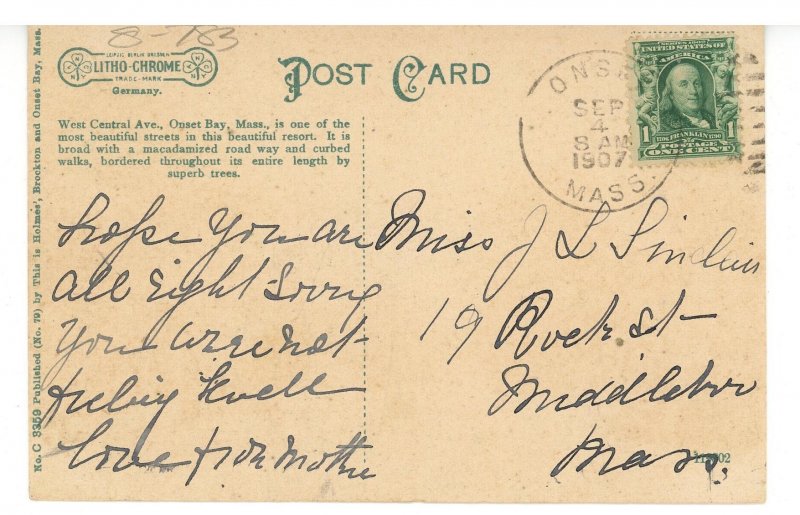 8-783
LEIPZIG BERLIN DRESDEN
LITHO-CHROME
TRADE-MARK
Germany.
POST CARD
West Central Ave., Onset Bay, Mass., is one of the
most beautiful streets in this beautiful resort. It is
broad with a macadamized road way and curbed
walks, bordered throughout its entire length by
superb trees.
No. C 3359 Published (No. 79) by This is Holmes', Brockton and Onset Bay, Mass.
hope You are
all right Sorry
You were not
feeling well
love from Mother
ONSET
SEP
4
8 AM
1907
MASS.
SERIES 1902
UNITED STATES OF
AMERICA
1706 FRANKLIN 1790
1 POSTAGE 1
ONE CENT
Miss J L
19 Rock st
Middleboro
Mass.